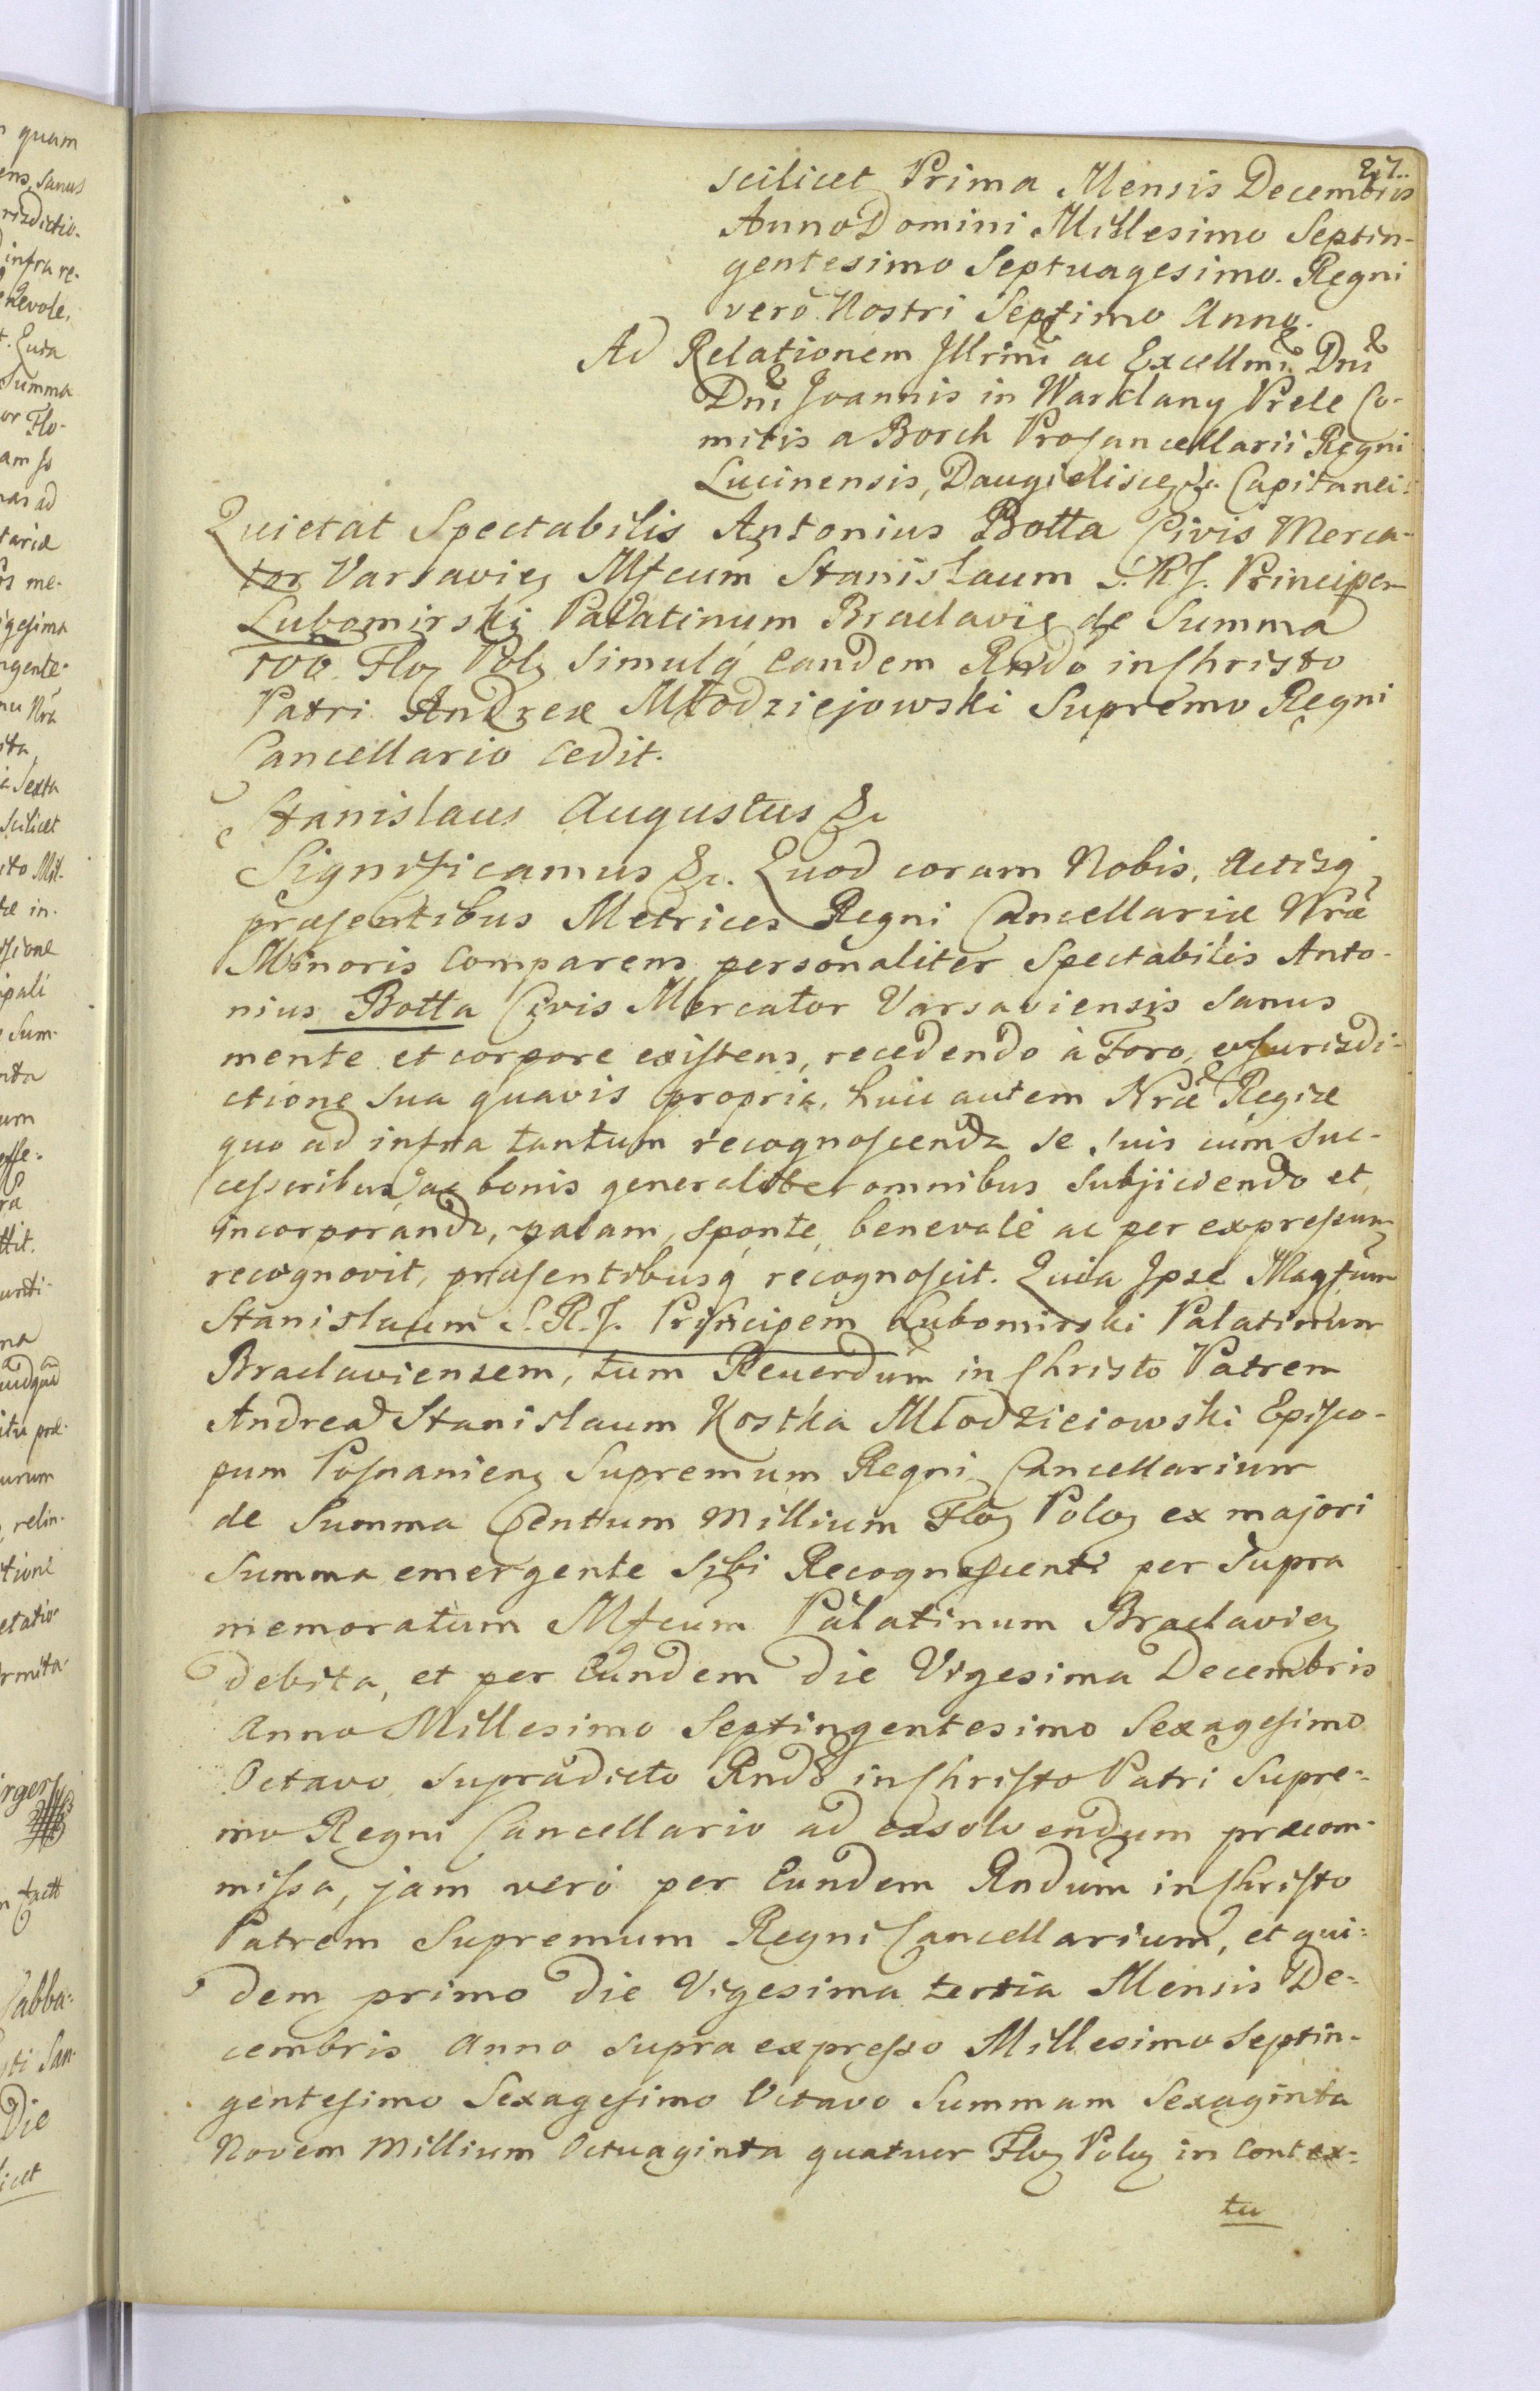 27.
scilicet Prima Mensis Decembris
Anno Domini Millesimo Septin-
gentesimo Septuagesimo. Regni
vero Nostri Septimo Anno.
Ad Relationem Jllrini ac Excellmi Dni
Dni Joannis in Warklany Prele Co-
mitis a Borch Procancellarii Regni
Lucinensis, Daugielisce &c. Capitanei:
Quietat Spectabilis Antonius Botta Civis Merca-
tor Varsavien Mfcum Stanislaum S. R. J. Principem
Lubomirski Palatinum Braclavie de Summa
100. Flo Pol simulq eandem Rndo in Christo
Patri Andreæ Młodziejowski Supremo Regni
Cancellario cedit.
Stanislaus Augustus &c
Significamus &c. Quod coram Nobis, Actisq
præsentibus Metrices Regni Cancellariæ Nræ
Minoris Comparens personaliter Spectabilis Anto-
nius Botta Civis Mercator Varsaviensis sanus
mente et corpore existens, recedendo à Foro, et Jurisdi-
ctione sua quavis propria, huic autem Nræ Regiæ
quo ad infra tantum recognoscenda se suis cum suc-
cessoribus ac bonis generaliter omnibus subjiciendo et
incorporando, palam, sponte, benevolè ac per expressum
recognovit, præsentibusq recognoscit. Quia Ipse Magfum
Stanislaum S. R. J. Principem Lubomirski Palatinum
Braclaviensem, tum Reverdum in Christo Patrem
Andream Stanislaum Kostka Młodzieiowski Episco-
pum Posnanien Supremum Regni Cancellarium
de Summa Centum Millium Flo Polo ex majori
Summa emergente Sibi Recognoscenti per Supra
memoratum Mfcum Palatinum Braclavien
debita, et per Eundem die Vigesima Decembris
Anno Millesimo Septingentesimo Sexagesimo
Octavo supradicto Rndo in Christo Patri Supre-
mo Regni Cancellario ad exsolvendum præcom-
missa, jam verò per Eundem Rndum in Christo
Patrem Supremum Regni Cancellarium, et qui-
dem primo die Vigesima tertia Mensis De-
cembris Anno supra expresso Millesimo Septin-
gentesimo Sexagesimo Octavo Summam Sexaginta
Novem Millium Octuaginta quatuor Flo Polo in Contex-
tu